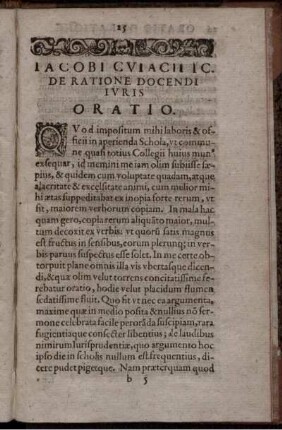 25
IACOBI CVIACII IC.
DE RATIONE DOCENDI
IVRIS
ORATIO.
QVod impositum mihi laboris & of-
ficii in aperienda Schola, vt commu-
ne quasi totius Collegii huius mun⁹
exsequar, id memini me iam olim subiisse sæ-
pius, & quidem cum voluptate quadam, atque
alacritate & excelsitate animi, cum melior mi-
hi ætas suppeditabat ex inopia forte rerum, vt
fit, maiorem verborum copiam. In mala hac
quam gero, copia rerum aliquāto maior, mul-
tum decoxit ex verbis: vt quorū satis magnus
est fructus in sensibus, eorum plerunq; in ver-
bis paruus suspectus esse solet. In me certe ob-
torpuit plane omnis illa vis vbertasque dicen-
di, & qua olim velut torrens concitatissime fe-
rebatur oratio, hodie velut placidum flumen
sedatissime fluit. Quo fit vt nec ea argumenta,
maxime quæ in medio posita & nullius nō ser-
mone celebrata facile perorāda suscipiam, rara
fugientiaque consecter libentius; & de laudibus
nimirum Iurisprudentiæ, quo argumento hoc
ipso die in scholis nullum est frequentius, di-
cere pudet pigetque. Nam præterquam quod
b 5